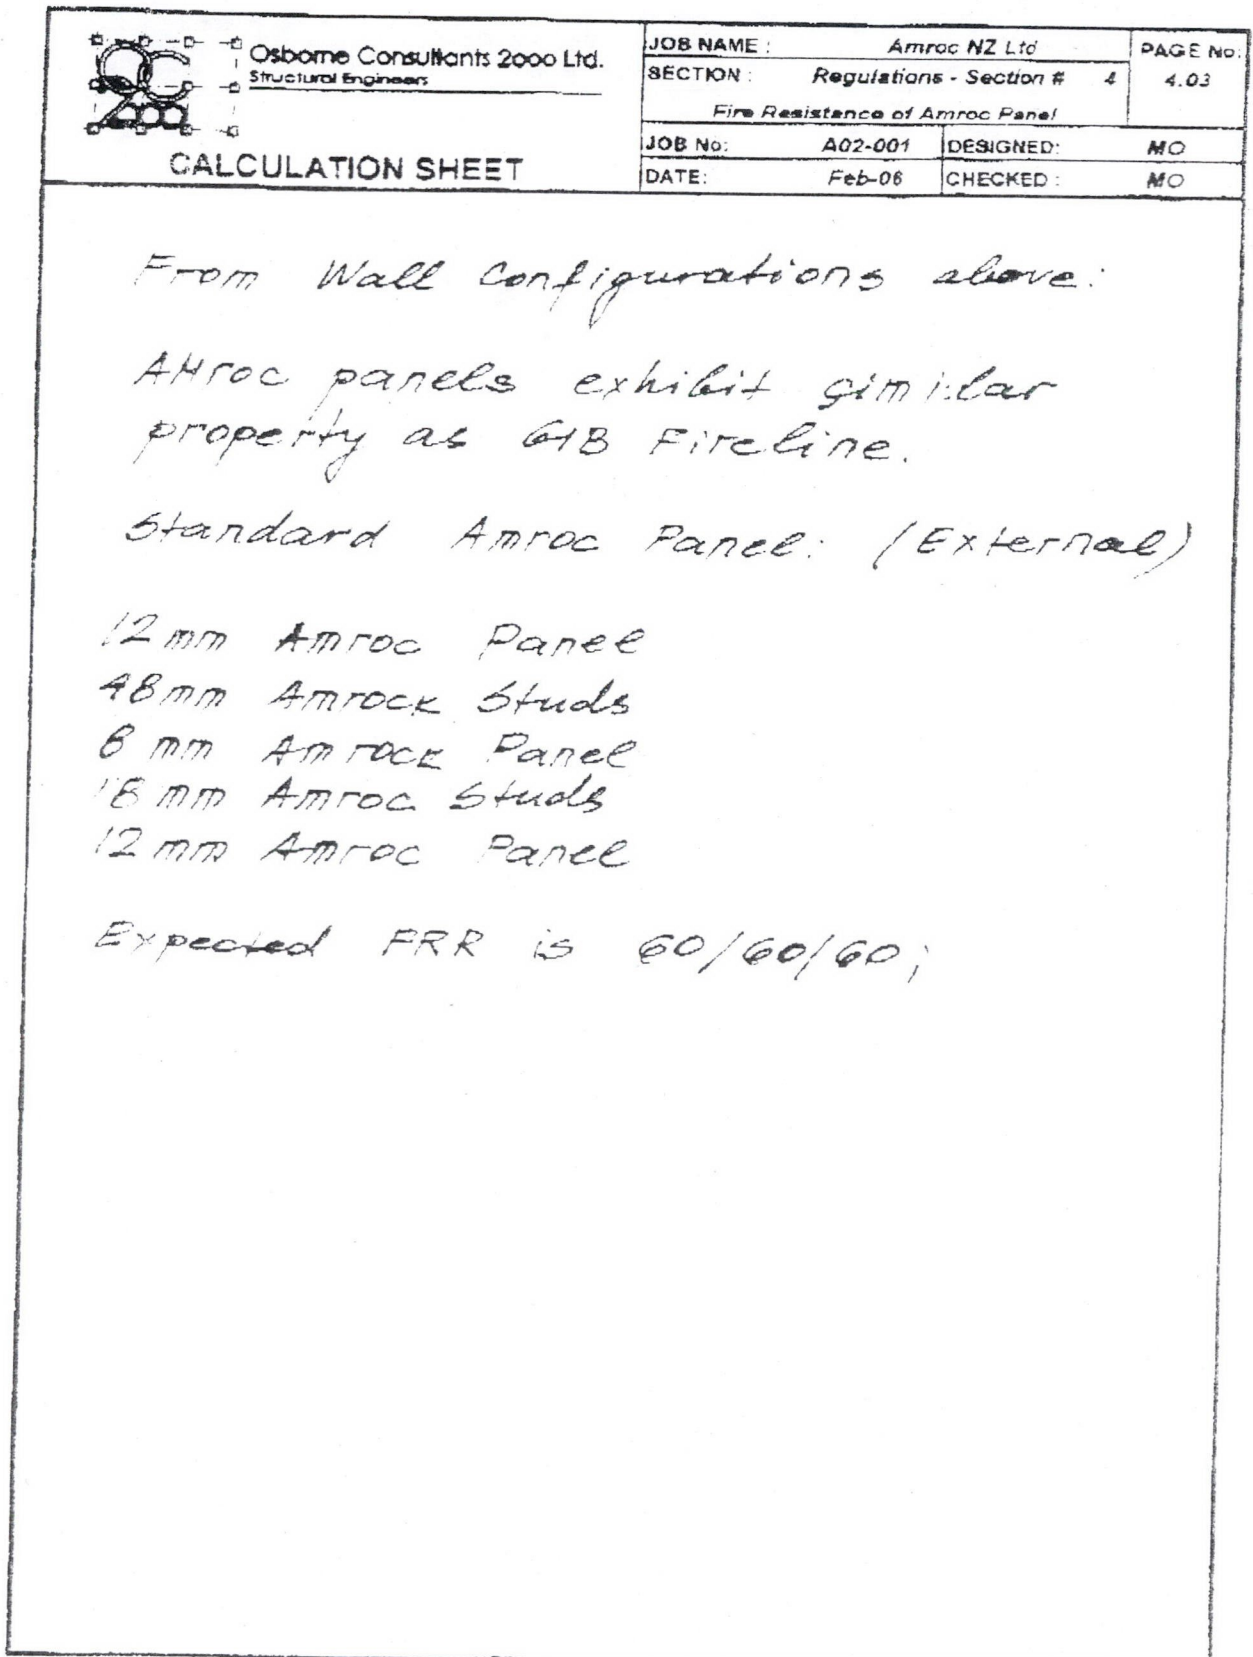 Osborne Consultants 2000 Ltd.
Structural Engineers
CALCULATION SHEET
JOB NAME : Amroc NZ Ltd
PAGE No:
SECTION : Regulations - Section # 4
4.03
Fire Resistance of Amroc Panel
JOB No: A02-001 DESIGNED: MO
DATE: Feb-06 CHECKED : MO
From Wall Configurations above:
AMroc panels exhibit similar
property as GIB Fireline.
Standard Amroc Panel: (External)
12mm Amroc Panel
48mm Amrock Studs
8 mm Amrock Panel
18 mm Amroc Studs
12 mm Amroc Panel
Expected FRR is 60/60/60;